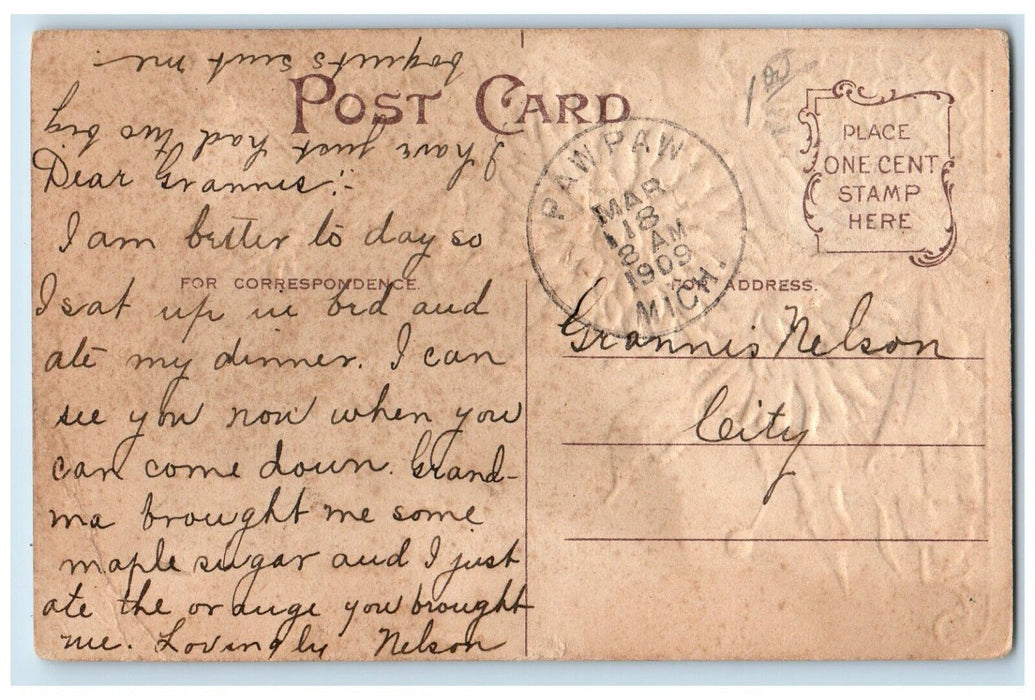 POST CARD
PLACE
ONE CENT
STAMP
HERE
PAW PAW
MAR
18
8 AM
1909
MICH.
1st
Dear Grannis:-
I am better to day so
FOR CORRESPONDENCE.
I sat up in bed and
ate my dinner. I can
see you now when you
can come down. Grand-
ma brought me some
maple sugar and I just
ate the orange you brought
me. Lovingly Nelson
I have just had two big
boquets sent me.
FOR ADDRESS.
Grannis Nelson
City